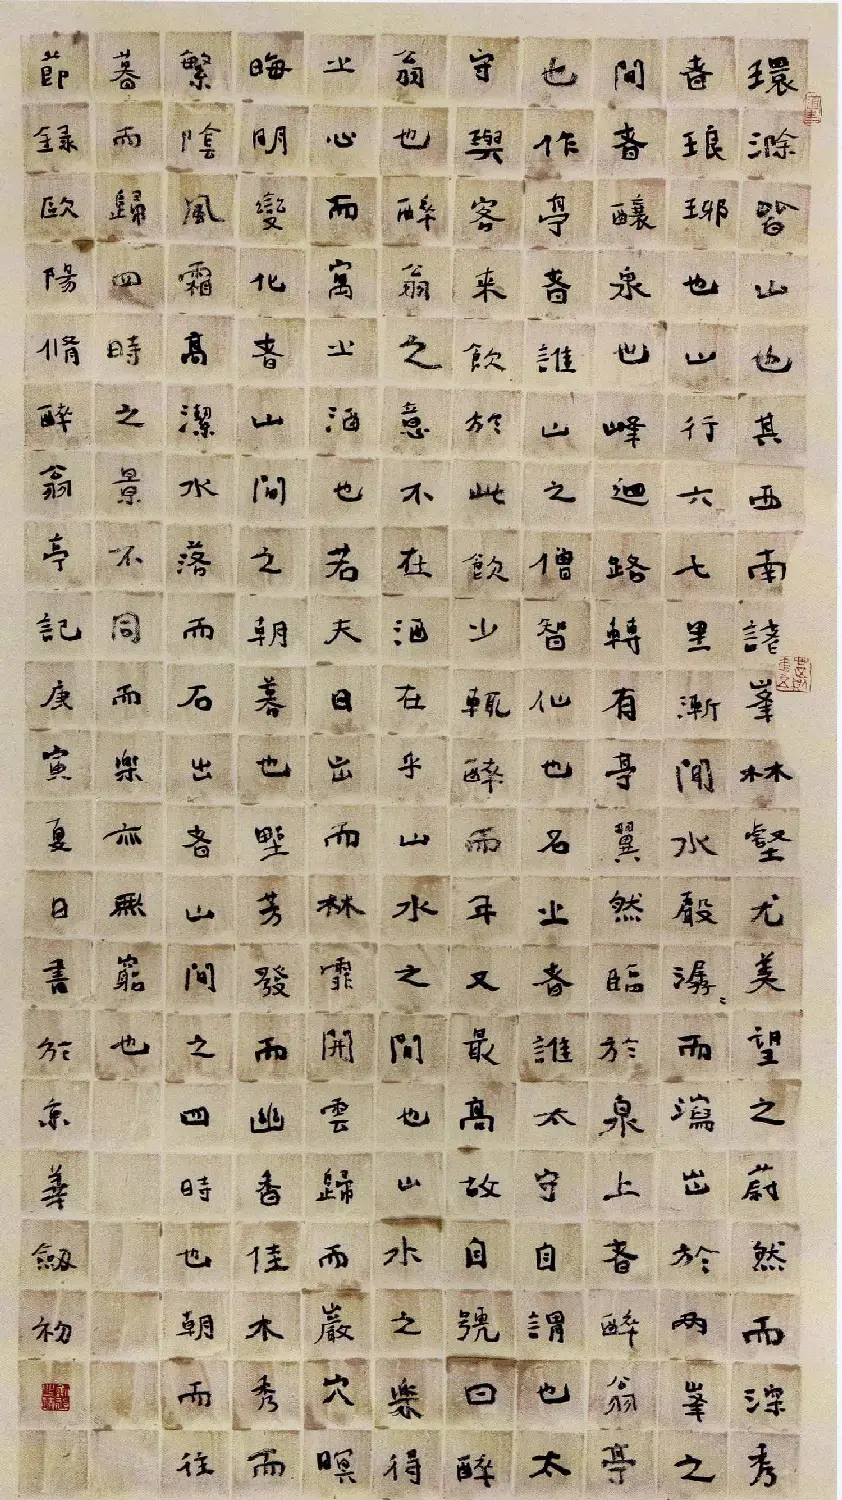 環滁皆山也其西南諸峯林壑尤美望之蔚然而深秀
者琅琊也山行六七里漸聞水聲潺〻而瀉出於兩峯之
間者釀泉也峰迴路轉有亭翼然臨於泉上者醉翁亭
也作亭者誰山之僧智仙也名之者誰太守自謂也太
守與客来飲於此飲少輒醉而年又最高故自號曰醉
翁也醉翁之意不在酒在乎山水之間也山水之樂得
之心而寓之酒也若夫日出而林霏開雲歸而巖穴暝
晦明變化者山間之朝暮也野芳發而幽香佳木秀而
繁陰風霜高潔水落而石出者山間之四時也朝而往
暮而歸四時之景不同而樂亦無窮也
節録歐陽脩醉翁亭記庚寅夏日書於京華劔初